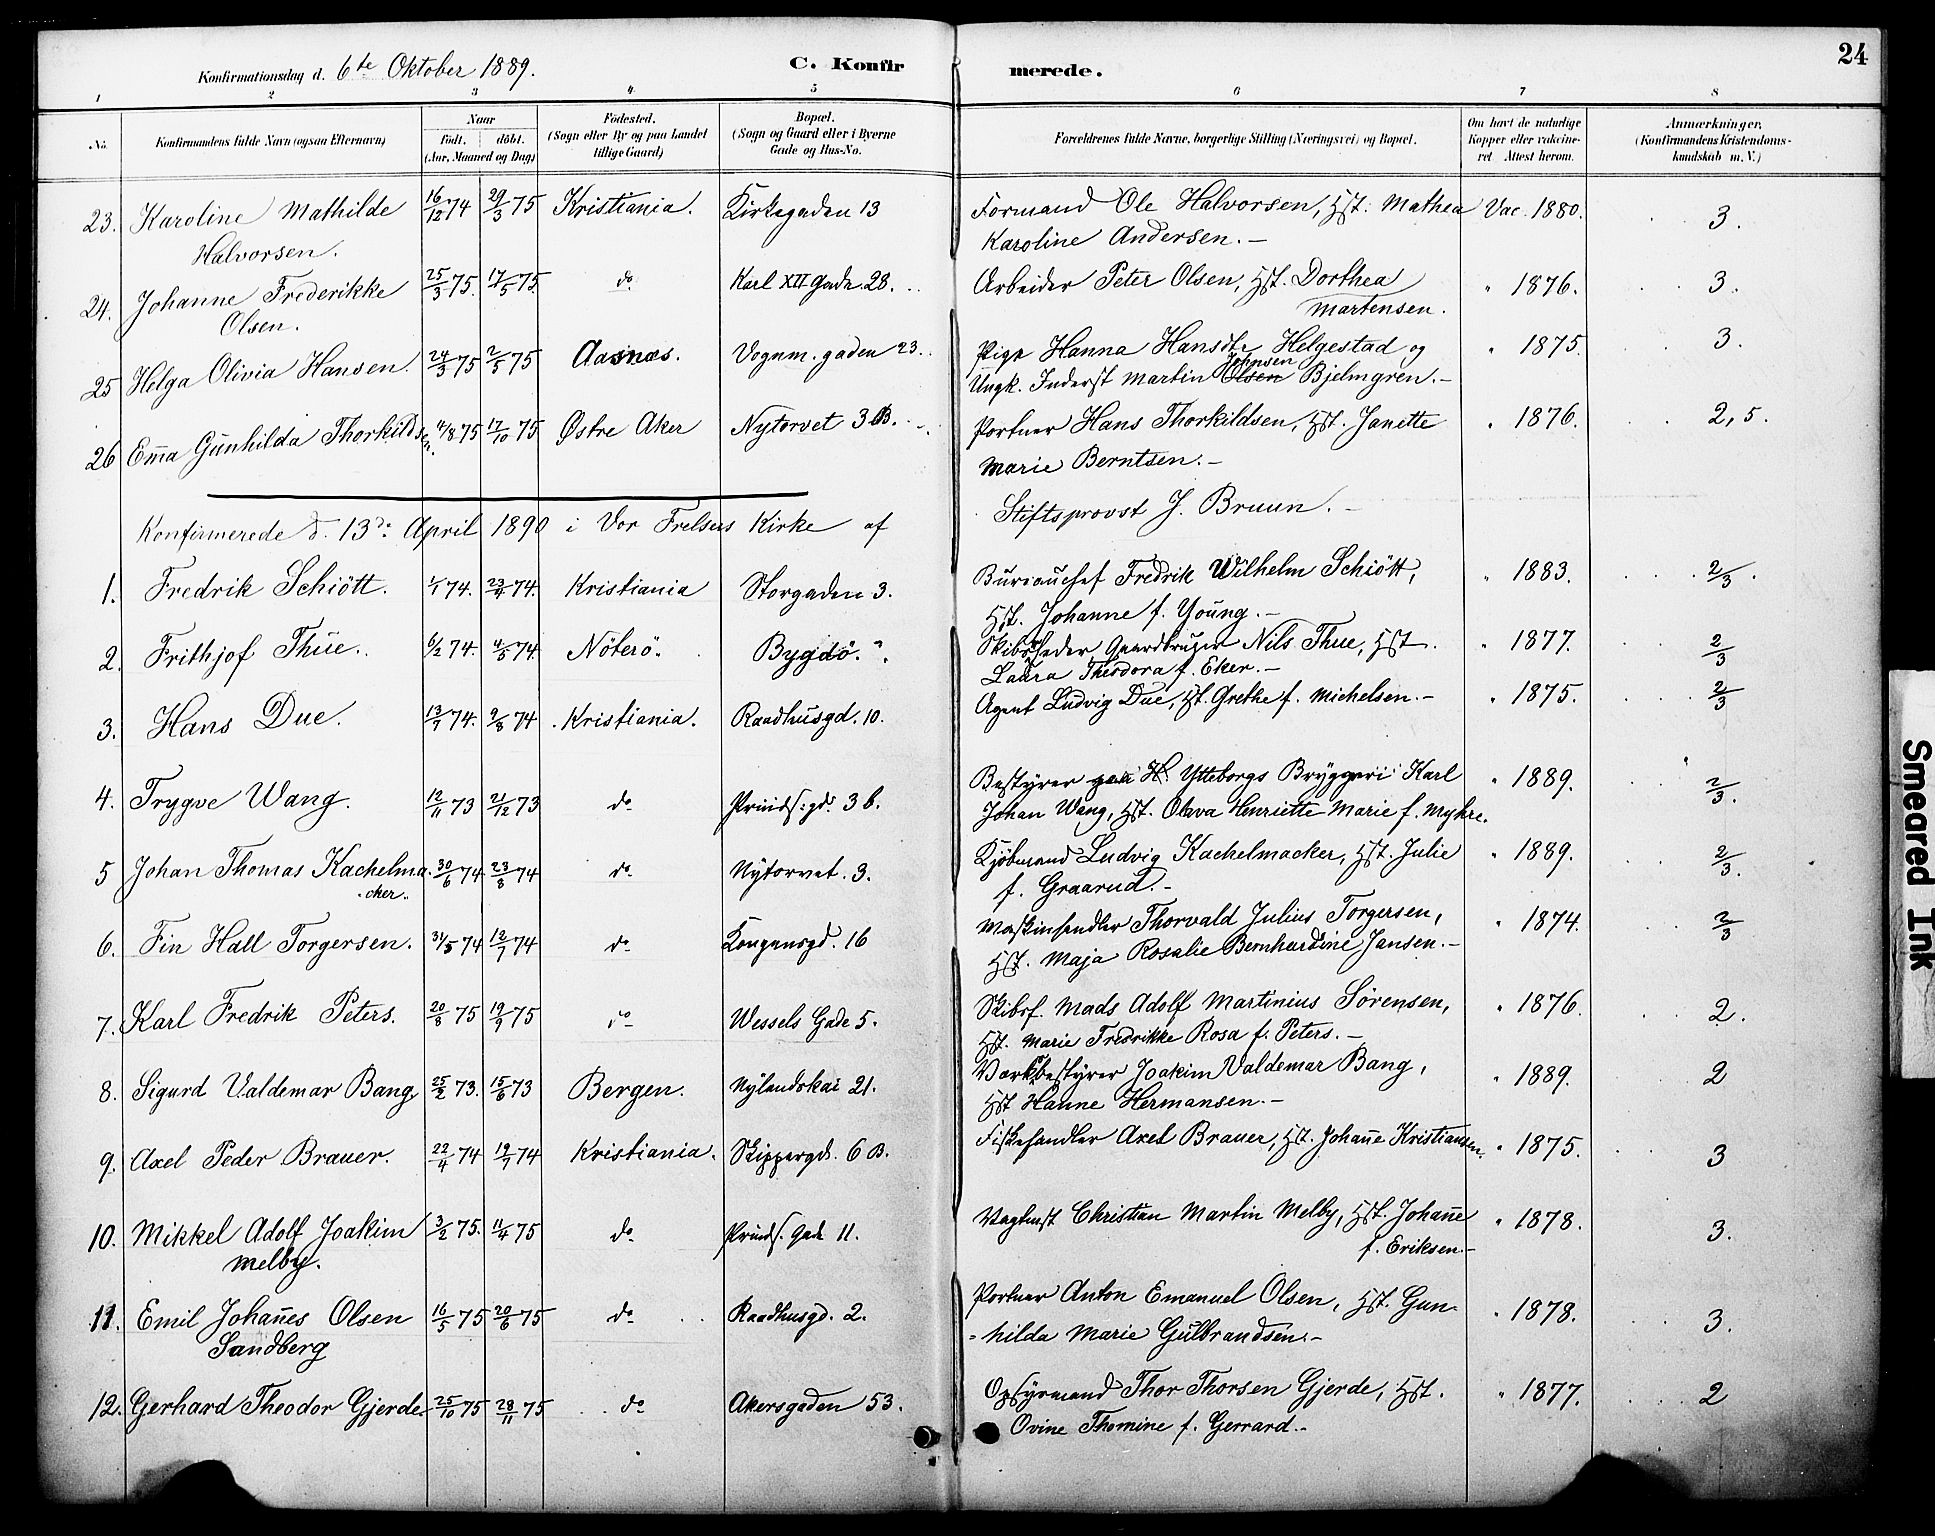 24
Konfirmationsdag d. 6te Oktober 1889. C. Konfirmerede.
1 2 3 4 5 6 7 8
No. Konfirmandens fulde Navn (ogsaa Efternavn) Naar födt. döbt. (Aar, Maaned og Dag) Födested. (Sogn eller By og paa Landet tillige Gaard) Bopæl. (Sogn og Gaard eller i Byerne Gade og Hus-No. Forældrenes fulde Navne, borgerlige Stilling (Næringsvei) og Bopæl. Om havt de naturlige Kopper eller vakcineret. Attest herom. Anmærkninger, (Konfirmandens Kristendomskundskab m. V.)
23. Karoline Mathilde 16/12 74 29/3 75 Kristiania. Kirkegaden 13 Formand Ole Halvorsen, Hst. Mathea Vac. 1880. 3.
Halvorsen. Karoline Andersen. –
24. Johanne Frederikke 25/3 75. 17/5 75. do Karl XII Gade 28. Arbeider Peter Olsen, Hst. Dorthea " 1876. 3.
Olsen. Martensen.
25 Helga Olivia Hansen. 24/3 75 2/5 75 Aasnæs. Vognm. gaden 23. Pige Hanna Hansdtr Helgestad og " 1875. 3.
Ungk. Inderst Martin Olsen Johnsen Bjelmgren. –
26 Emma Gunhilda Thorkildsen. 11/8 75 17/10 75 Østre Aker Nytorvet 3 B. Portner Hans Thorkildsen, Hst. Janette " 1876. 2,5.
Marie Berntsen. –
Konfirmerede d. 13de April 1890 i Vor Frelsers Kirke af Stiftsprovst J. Bruun. –
1. Fredrik Schiött. 1/1 74. 23/4 74. Kristiania Storgaden 3. Bureauchef Fredrik Wilhelm Schiött, " 1883. 2/3.
Hst. Johanne f. Young. –
2. Frithjof Thue. 6/2 74. 4/5 74. Nöterö. Bygdö. Skibsrheder Gaardbruger Nils Thue, Hst. " 1877. 2/3
Laura Theodora f. Eker. –
3. Hans Due. 13/7 74. 9/8 74 Kristiania. Raadhusgd. 10. Agent Ludvig Due, Hst. Grethe f. Michelsen. – " 1875. 2/3
4. Trygve Wang. 12/11 73 21/12 73 do Prinds. gd. 3 b. Bestyrer paa H. Ytteborgs Bryggeri Karl " 1889. 2/3.
Johan Wang, Hst. Olava Henriette Marie f. Myhre.
5 Johan Thomas Kachelma- 30/6 74. 23/8 74 do Nytorvet. 3. Kjöbmand Ludvig Kachelmacker, Hst. Julie " 1889. 2/3.
cker. f. Graarud. –
6. Fin Hall Torgersen. 31/5 74 12/7 74 do Kongensgd. 16 Maskinhandler Thorvald Julius Torgersen, " 1874. 2/3
Hst. Maja Rosalie Bernhardine Jansen. –
7. Karl Fredrik Peters. 20/8 75 19/9 75 do Wessels Gade 5. Skibsf. Mads Adolf Martinius Sörensen, " 1876. 2.
Hst. Marie Fredrikke Rosa f. Peters. –
8. Sigurd Valdemar Bang. 25/2 73. 15/6 73 Bergen. Nylandskai 21. Værkbestyrer Joakim Valdemar Bang, " 1889. 2
Hst Hanne Hermansen. –
9. Axel Peder Brauer. 22/4 74 12/7 74 Kristiania. Skippergd. 6 B. Fiskehandler Axel Brauer, Hst. Johanne Kristiansen. " 1875. 3
10. Mikkel Adolf Joakim 3/2 75. 11/4 75 do Prinds. Gade 11. Vagtmst Christian Martin Melby, Hst. Johanne " 1878. 3.
Melby. f. Eriksen. –
11. Emil Johannes Olsen 16/5 75 20/6 75 do Raadhusgd. 2. Portner Anton Emanuel Olsen, Hst. Gun- " 1878. 3.
Sandberg hilda Marie Gulbrandsen. –
12. Gerhard Theodor Gjerde. 25/10 75 28/11 75 do Akersgaden 53. Opsynsmand Thor Thorsen Gjerde, Hst. " 1877. 2
Ovine Thomine f. Gerrard. –
Smeared Ink